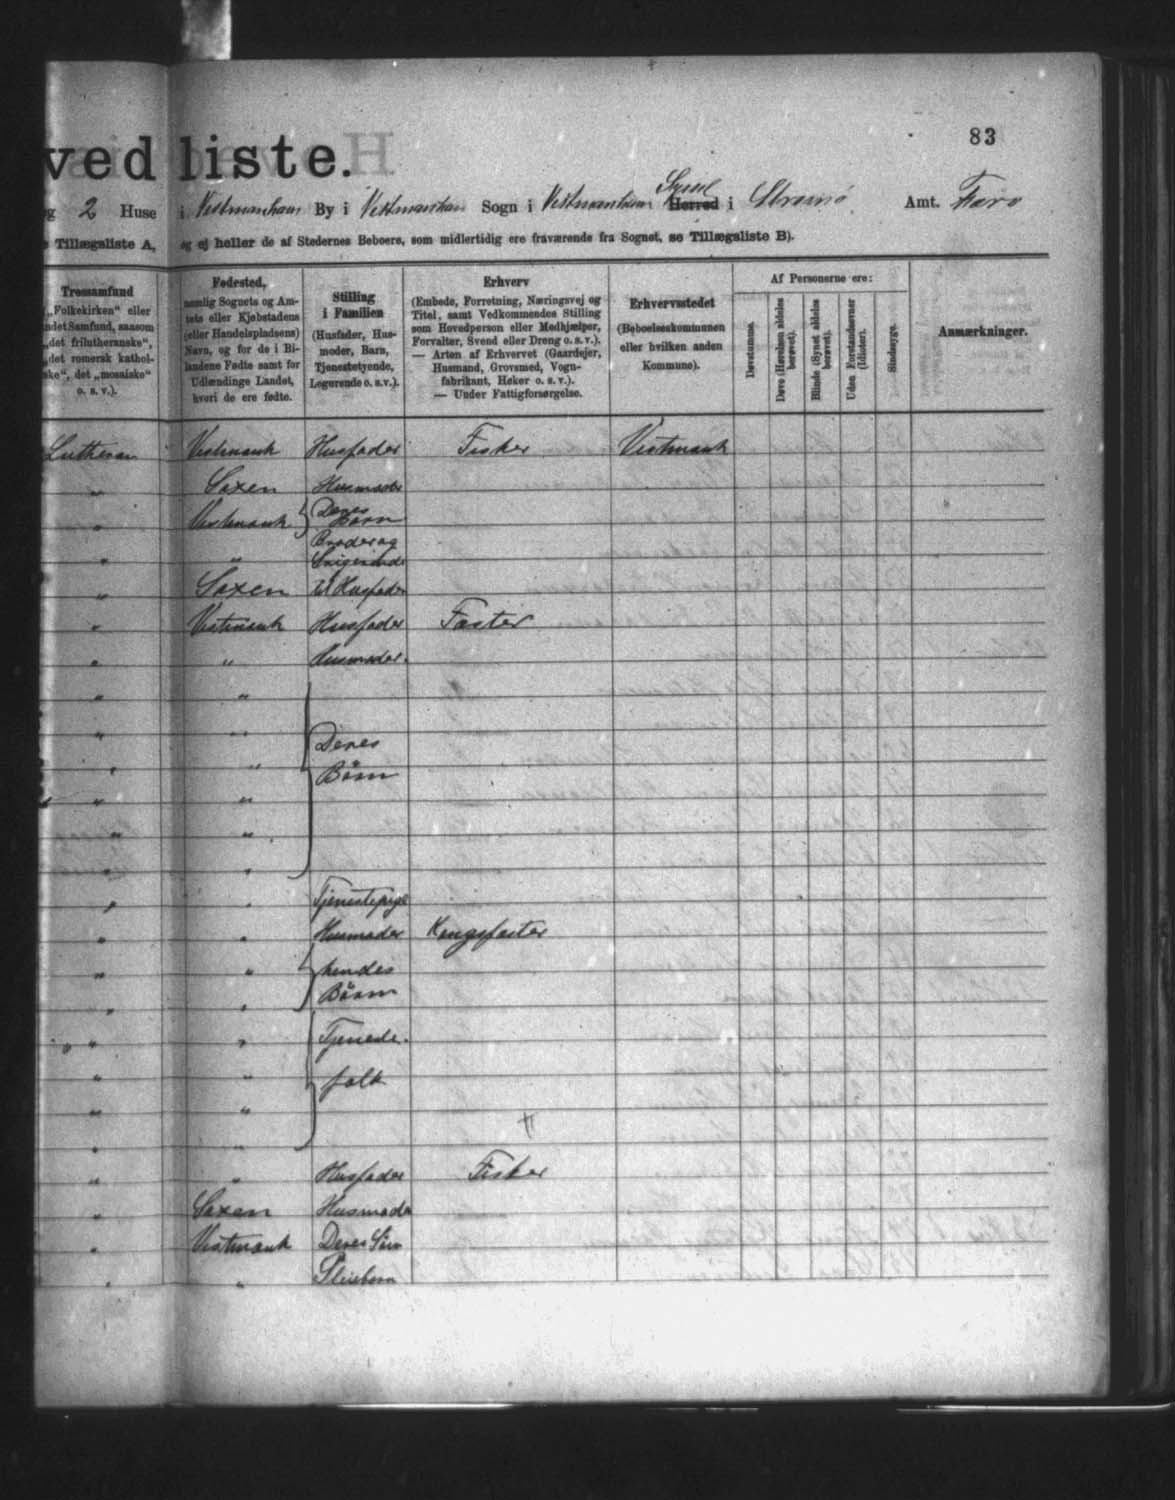 83
ved liste.
og 2 Huse i Vestmanhavn By i Vestmanhavn Sogn i Vestmanhavn Syssel Herred i Strømø Amt. Færø
e Tillægsliste A, og ej heller de af Stedernes Beboere, som midlertidig ere fraværende fra Sognet, se Tillægsliste B).
Trossamfund
(„Folkekirken“ eller
andet Samfund, saasom
„det frilutheranske“,
„det romersk kathol-
ske“, det „mosaiske“
o. s. v.).
Fødested,
nemlig Sognets og Am-
tets eller Kjøbstadens
(eller Handelspladsens)
Navn, og for de i Bi-
landene Fødte samt for
Udlændinge Landet,
hvori de ere fødte.
Stilling
i Familien
(Husfader, Hus-
moder, Barn,
Tjenestetyende,
Logerende o. s. v.).
Erhverv
(Embede, Forretning, Næringsvej og
Titel, samt Vedkommendes Stilling
som Hovedperson eller Medhjælper,
Forvalter, Svend eller Dreng o. s. v.).
— Arten af Erhvervet (Gaardejer,
Husmand, Grovsmed, Vogn-
fabrikant, Høker o. s. v.).
— Under Fattigforsørgelse.
Erhvervsstedet
(Beboelseskommunen
eller hvilken anden
Kommune).
Af Personerne ere:
Døvstumme.
Døve (Hørelsen aldeles
berøvet).
Blinde (Synet aldeles
berøvet).
Uden Forstandsevner
(Idioter).
Sindssyge.
Anmærkninger.
Lutheran Vestmanh Husfader Fisker Vestmanh
" Saxen Husmoder
" Vestmanh Deres Børn
" " Broder og
Svigerinde
" Saxen til Husfader
" Vestmanh Husfader Fæster
" " Husmoder.
" "
" " Deres
" " Børn
" "
" "
" "
" " Tjenestepige
" " Husmoder Kongsfæster
" " hendes
" " Børn
" " Tjeneste-
" " folk
" "
" "
" " Husfader Fisker
" Saxen Husmoder
" Vestmanh Deres Søn
" " Pleiebarn